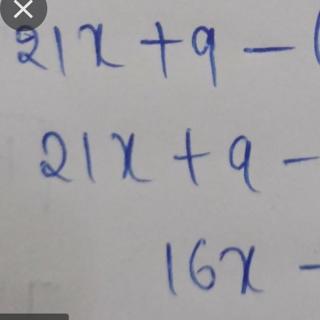 21x + 9 - (
21x + 9 -
16x -